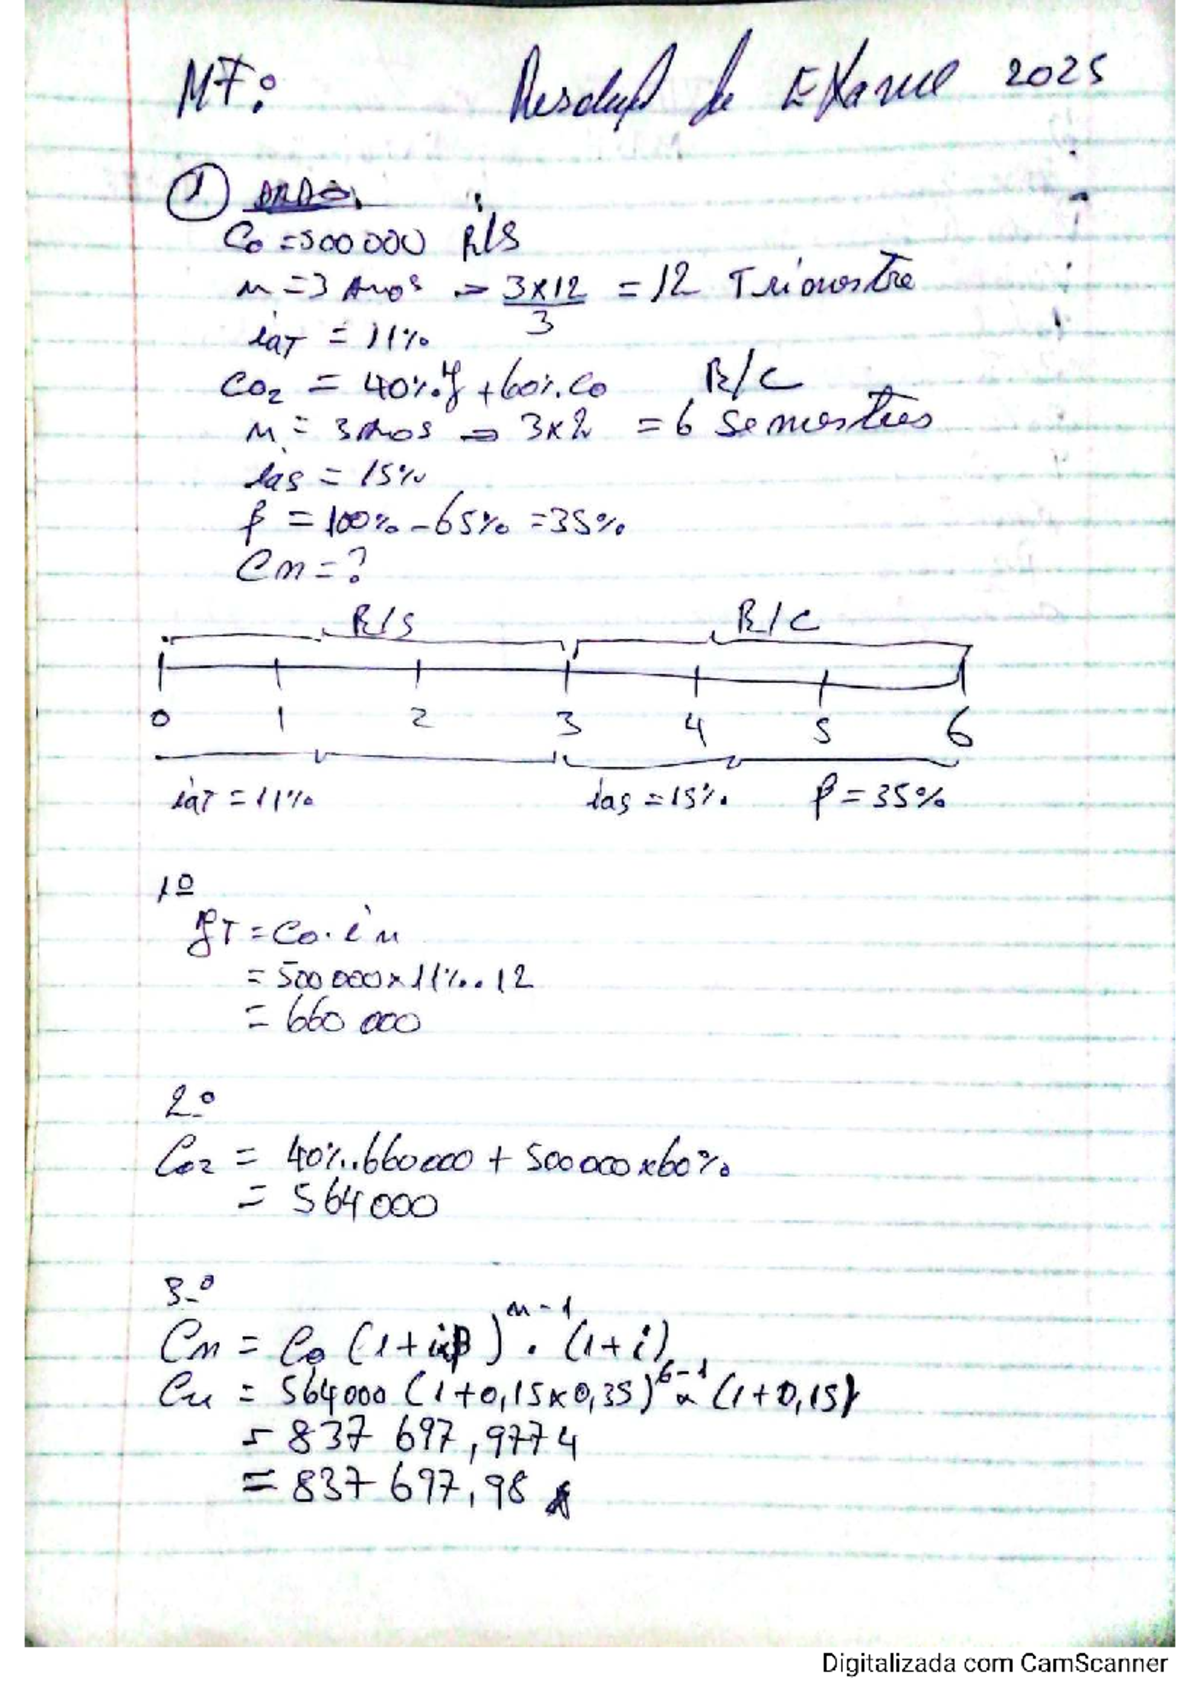 MF: Resolução de EXame 2025
1 DADOS
Co = 500 000 R/S
n = 3 Anos => 3x12/3 = 12 Trimestre
iaT = 11%
Co2 = 40%.J + 60%.Co R/C
n = 3 Anos => 3x2 = 6 Semestres
ias = 15%
β = 100% - 65% = 35%
Cn = ?
R/S R/C
0 1 2 3 4 5 6
iaT = 11% ias = 15% β = 35%
1º
JT = Co.i n
= 500 000x11%.12
= 660 000
2º
Co2 = 40%.660000 + 500 000x60%
= 564 000
3º
Cn = Co (1+ixβ)^n-1 . (1+i)
Cn = 564 000 (1+0,15x0,35)^6-1 x (1+0,15)
= 837 697,9774
= 837 697,98
Digitalizada com CamScanner